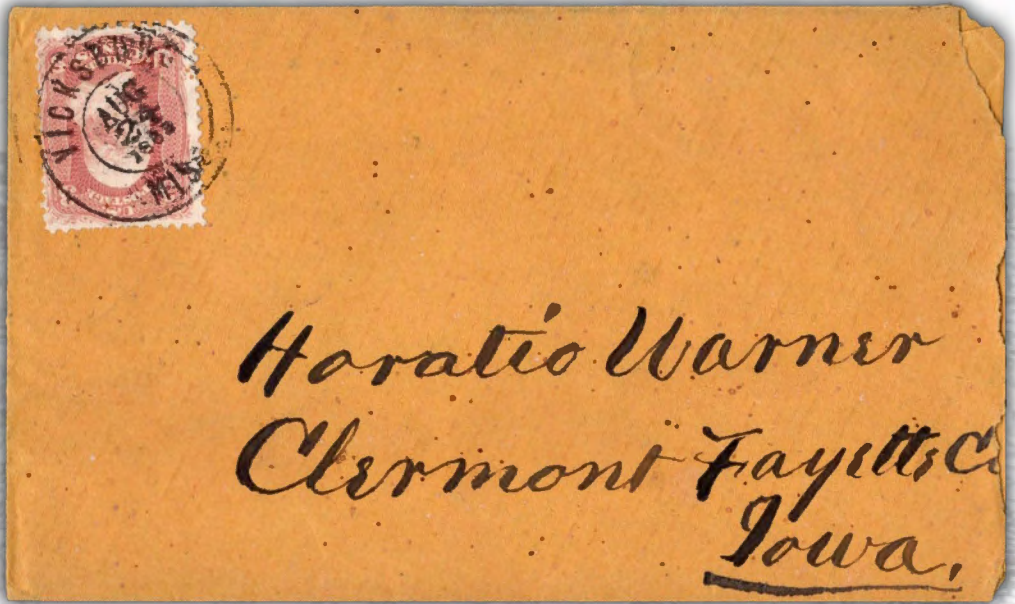 VICKSBURG
MISS
AUG
1863
Horatio Warner
Clermont Fayette Co
Iowa.